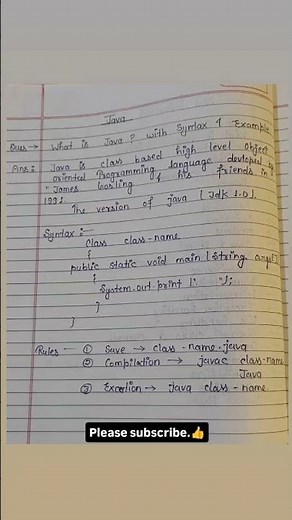 Java
Ques → What is Java? with Syntax & Example
Ans: Java is class based high level object
oriented Programming language devloped by
"James Gosling & his friends in
1991
The version of java [Jdk 1.0].
Syntax :-
Class class-name
{
public static void main [string args]
{
System.out print ["    "];
}
}
Rules — ① Save → class-name.java
② Compilation → javac class-name
Java
③ Excetion → java class-name.
Please subscribe.👍